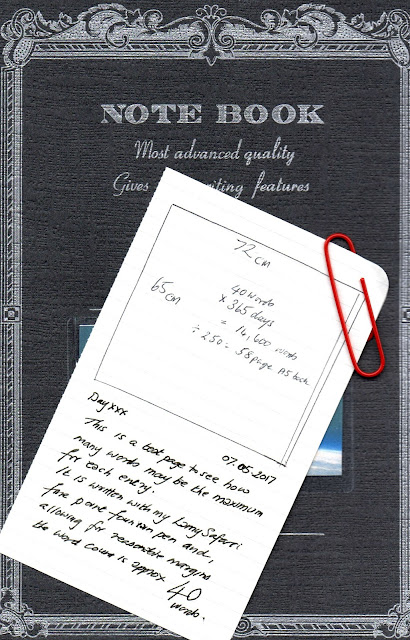 NOTE BOOK
Most advanced quality
Gives riting features
72cm
65cm
40 words
x 365 days
= 14,600 words
÷ 250 = 58 page A5 book
Day xxx 07.05.2017
This is a test page to see how
many words may be the maximum
for each entry.
It is written with my Lamy Safari
fine point fountain pen and,
allowing for reasonable margins
the word count is approx 40
words.